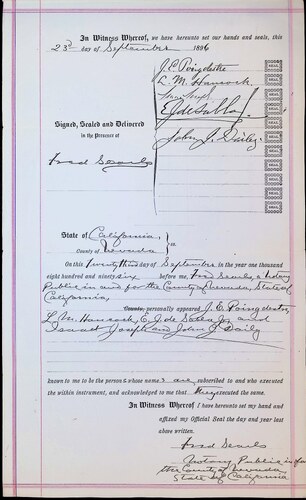 In Witness Whereof, we have hereunto set our hands and seals, this
23rd day of September 1896
J. E. Poingdestre SEAL
L. M. Hancock SEAL
SEAL
E. J. de Sabla Jr SEAL
Signed, Sealed and Delivered
in the Presence of
John J. Daily SEAL
Fred Searls
State of California,
County of Nevada } ss.
On this Twenty third day of September in the year one thousand
eight hundred and ninety six before me, Fred Searls a Notary
Public in and for the County of Nevada, State of
California,
County, personally appeared J. E. Poingdestre,
L. M. Hancock, E. J. de Sabla Jr, and
Isaac Joseph and John J. Daily
known to me to be the persons whose names are subscribed to and who executed
the within instrument, and acknowledged to me that they executed the same.
In Witness Whereof I have hereunto set my hand and
affixed my Official Seal the day and year last
above written.
Fred Searls
Notary Public in for
the County of Nevada
State of California